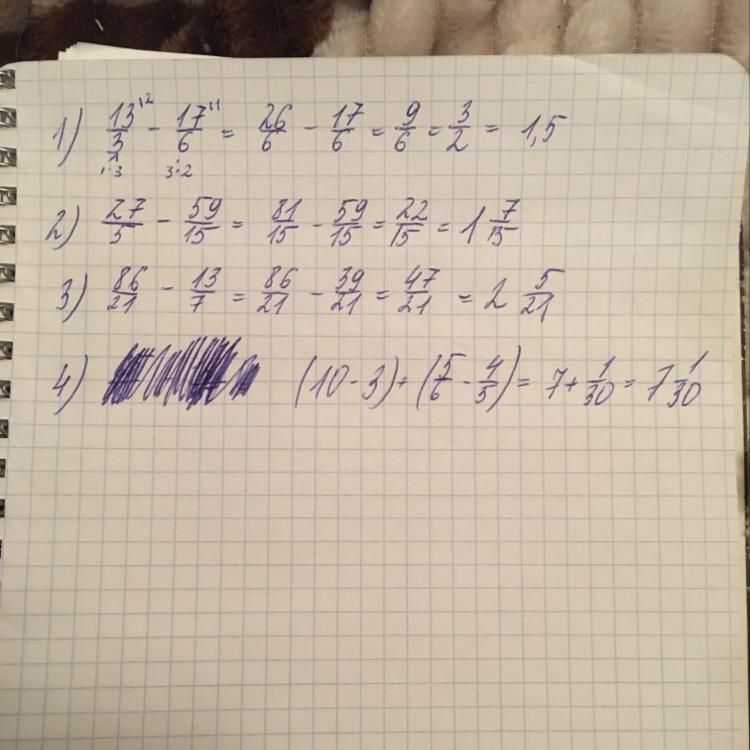 1) 13/3 ¹² - 17/6 ¹¹ = 26/6 - 17/6 = 9/6 = 3/2 = 1,5
1:3 3:2
2) 27/5 - 59/15 = 81/15 - 59/15 = 22/15 = 1 7/15
3) 86/21 - 13/7 = 86/21 - 39/21 = 47/21 = 2 5/21
4) (10 - 3) + (5/6 - 4/5) = 7 + 1/30 = 7 1/30